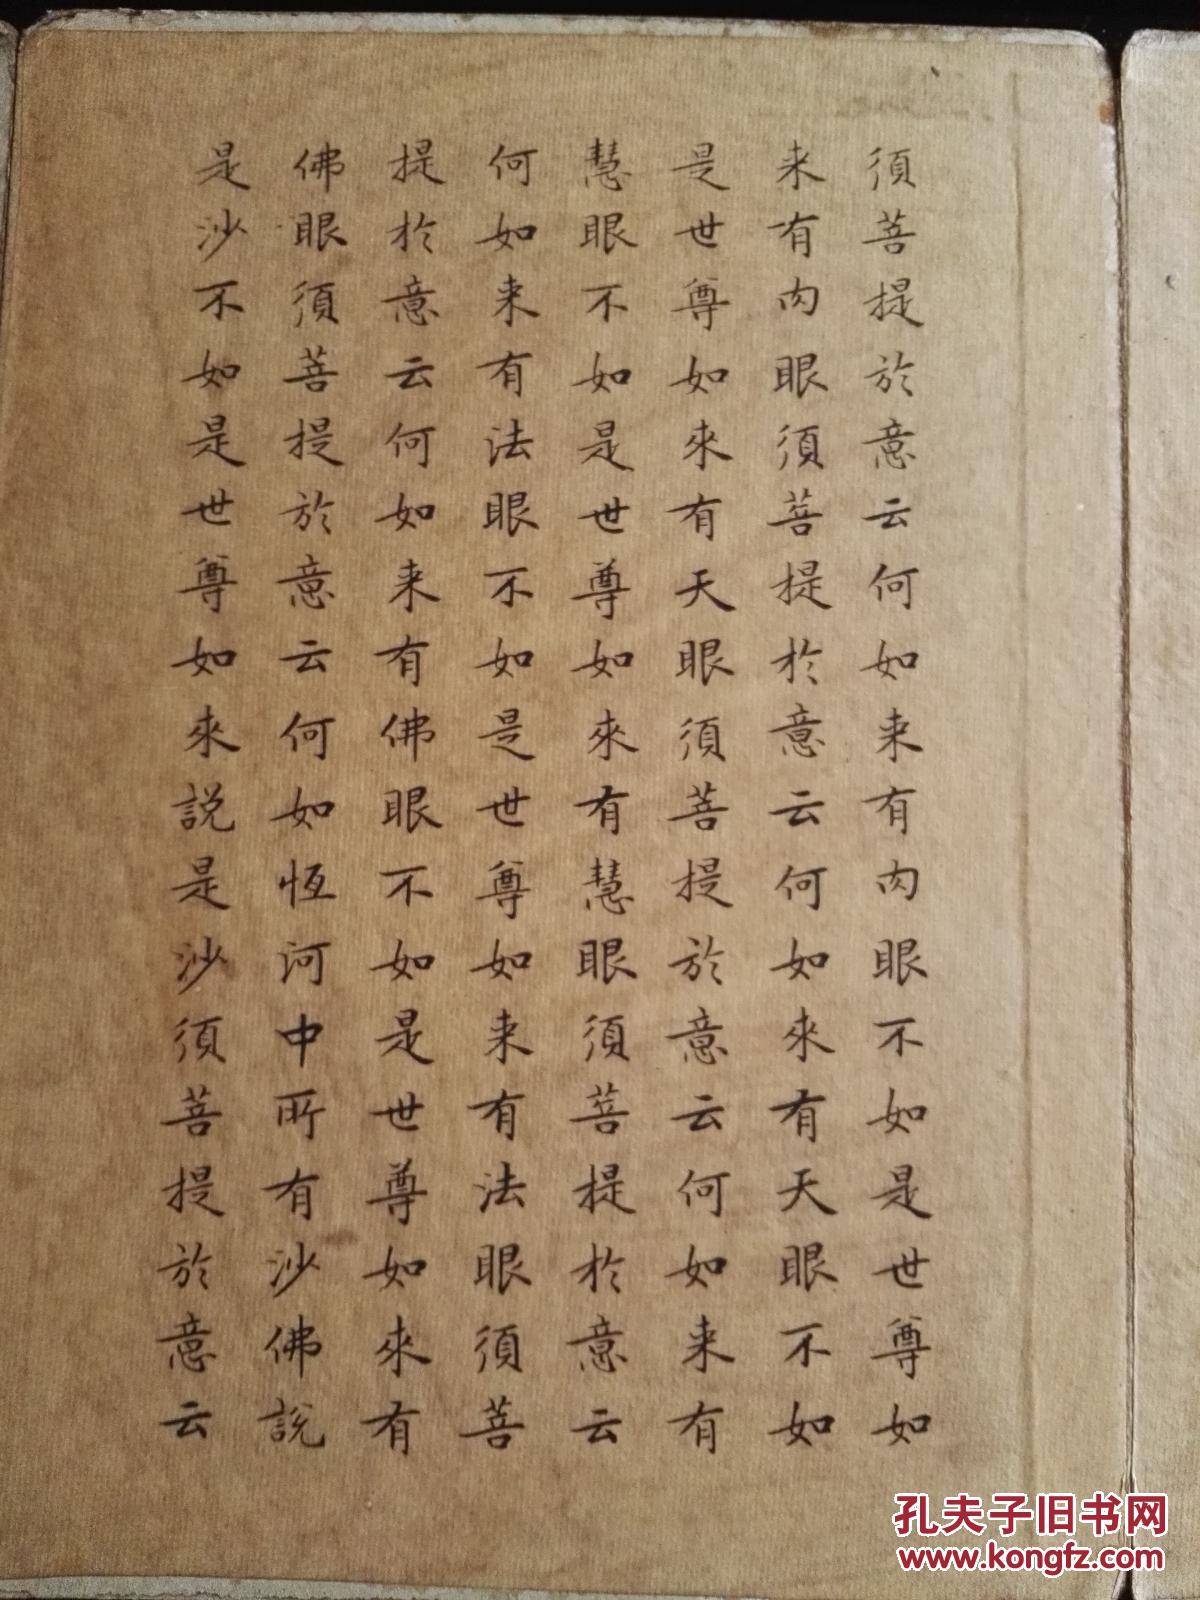 須菩提於意云何如来有肉眼不如是世尊如
来有肉眼須菩提於意云何如來有天眼不如
是世尊如來有天眼須菩提於意云何如来有
慧眼不如是世尊如來有慧眼須菩提於意云
何如来有法眼不如是世尊如来有法眼須菩
提於意云何如来有佛眼不如是世尊如來有
佛眼須菩提於意云何如恆河中所有沙佛說
是沙不如是世尊如來說是沙須菩提於意云
孔夫子旧书网
www.kongfz.com